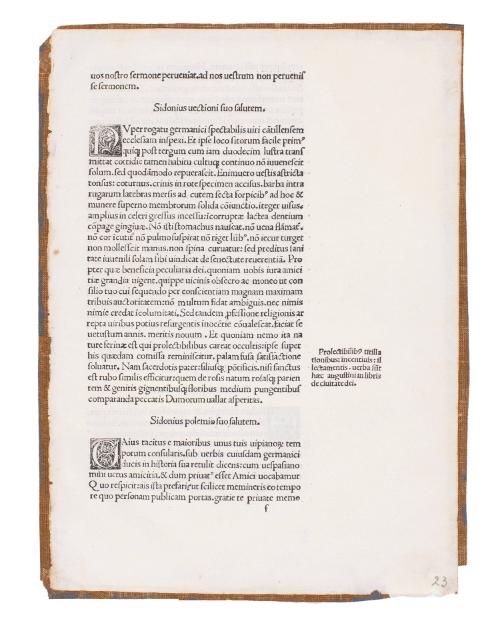 uos nostro sermone perueniat. ad nos uestrum non peruenis
se sermonem.
Sidonius uectioni suo salutem.
NVper rogatu germanici spectabilis uiri cātillensem
ecclesiam inspexi. Et ipse loco sitorum facile primꝰ
quiqȝ post tergum cum iam duodecim lustra trans
mittat cottidie tamen habitu cultuqȝ continuo nō iuuenescit
solum. sed quodāmodo repuerascit. Enimuero uestis astricta
tensus: coturnus. crinis in rote specimen accisus. barba intra
rugarum latebras mersis ad cutem secta forpicibꝰ ad hoc &
munere superno membrorum solida cōiunctio. iteger uisus.
amplius in celeri gressus incessu: icorruptæ lactea dentium
cōpage gingiuæ. Nō isti stomachus nauseat. nō uena flāmat.
nō cor icutit nō pulmo suspirat nō riget lūbꝰ. nō iecur turget
non mollescit manus. non spina curuatur: sed preditus sani
tate iuuenili solam sibi uindicat de senectute reuerentiā. Pro
pter quæ beneficia peculiaria dei. quoniam uobis iura amici
tiæ grandia uigent. quippe uicinis obsecro ac moneo ut con
silio tuo cui sequendo per conscientiam magnam maximam
tribuis auctoritatem: nō multum fidat ambiguis. nec nimis
nimie credat icolumitati. Sed tandem ꝓfessione religionis ar
repta uiribus potius resurgentis inocētie cōualescat. faciat se
uetustum annis. meritis nouum. Et quoniam nemo ita na
turæ serinæ est qui prolectibilibus careat occultis: ipse super
his quædam comissa reminiscitur. palam fusa satisfactione
soluatur. Nam sacerdotis pater: filiusqȝ pōtificis. nisi sanctus
est rubo similis efficitur: quem de rosis natum rosasqȝ parien
tem & genitis gignentibusqȝ floribus medium pungentibus
comparanda peccatis Dumorum uallat asperitas.
Prolectibilibꝰ titilla
tionibus: incentiuis: il
lectamentis. uerba sūt
hæc augustini in libris
de ciuitate dei.
Sidonius polemio suo salutem.
GAius tacitus e maioribus unus tuis uipianoqȝ tem
porum consularis. sub uerbis cuiusdam germanici
ducis in historia sua retulit dicens: cum uespasiano
mihi uetus amicitia. & dum priuatꝰ esset Amici uocabamur
Quo respicit: ais ista prefari? ut scilicet memineris eo tempo
re quo personam publicam portas. gratie te priuate memo
f
23